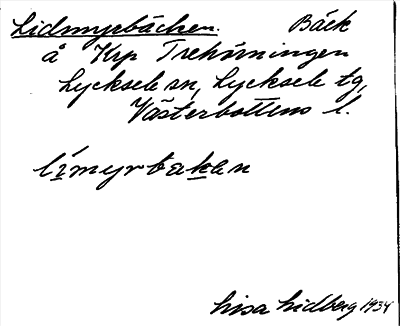 Lidmyrbäcken. Bäck
å Krp Trehörningen
Lycksele sn, Lycksele tg,
Västerbottens l.
límyrbakan
Lisa Lidberg 1934